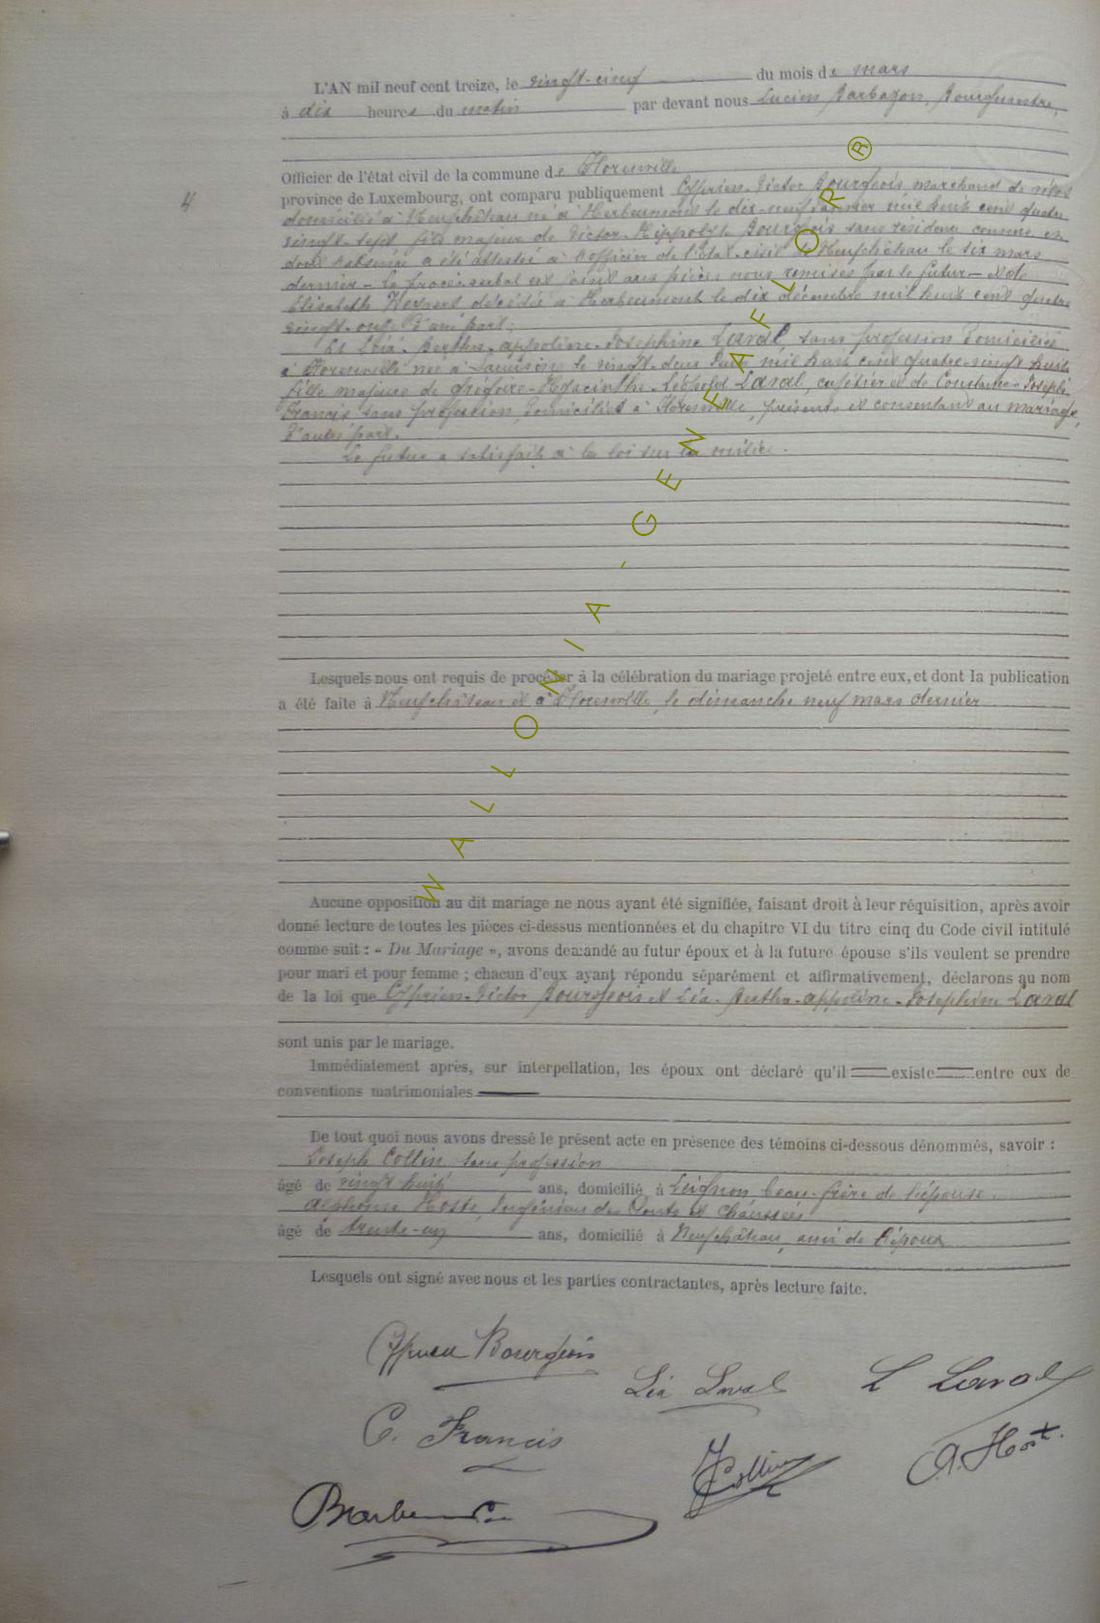 L'AN mil neuf cent treize, le vingt-cinq du mois de mars
à dix heures du matin par devant nous Lucien Barbazon, Bourgmestre,
Officier de l'état civil de la commune de Florenville
province de Luxembourg, ont comparu publiquement Cyprien-Victor Bourgeois, marchand de
4
domicilié à Neufchâteau né à Herbeumont le dix-neuf janvier mil huit cent quatre
vingt-sept fils majeur de Victor-Hippolyte Bourgeois sans résidence connue et
dont l'absence a été attestée à l'officier de l'état-civil de Neufchâteau le six mars
dernier - le procès verbal est joint aux pièces nous remises par le futur - et de
Elisabeth décédée à Herbeumont le dix décembre mil huit cent quatre
vingt-onze d'une part;
Et Léa-Bertha-Appoline-Joséphine Laval, sans profession domiciliée
à Florenville née à le vingt-deux mil huit cent quatre-vingt huit
fille majeure de Grégoire-Hyacinthe-Léopold Laval, cafetier et de Constance-Josèphe
Francis sans profession, domiciliés à Florenville, présents et consentant au mariage,
d'autre part.
Le futur a satisfait à la loi sur la milice.
Lesquels nous ont requis de procéder à la célébration du mariage projeté entre eux, et dont la publication
a été faite à Neufchâteau et à Florenville, le dimanche neuf mars dernier
Aucune opposition au dit mariage ne nous ayant été signifiée, faisant droit à leur réquisition, après avoir
donné lecture de toutes les pièces ci-dessus mentionnées et du chapitre VI du titre cinq du Code civil intitulé
comme suit : « Du Mariage », avons demandé au futur époux et à la future épouse s'ils veulent se prendre
pour mari et pour femme ; chacun d'eux ayant répondu séparément et affirmativement, déclarons au nom
de la loi que Cyprien-Victor Bourgeois et Léa-Bertha-Appoline-Joséphine Laval
sont unis par le mariage.
Immédiatement après, sur interpellation, les époux ont déclaré qu'il existe entre eux de
conventions matrimoniales
De tout quoi nous avons dressé le présent acte en présence des témoins ci-dessous dénommés, savoir :
Joseph Collin, sans profession
âgé de vingt huit ans, domicilié à Leignon beau-frère de l'épouse.
Alphonse Hoste, Ingénieur des Ponts et Chaussées
âgé de trente-un ans, domicilié à Neufchâteau, ami de l'époux
Lesquels ont signé avec nous et les parties contractantes, après lecture faite.
Cyprien Bourgeois
Léa Laval
L Laval
C. Francis
J Collin
A. Host.
WALLONIA-GENEAFLOR®